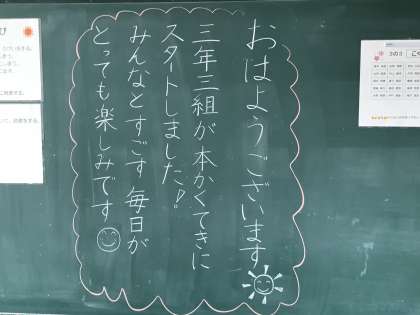 おはようございます
三年三組が本かくてきに
スタートしました♪
みんなとすごす毎日が
とっても楽しみです